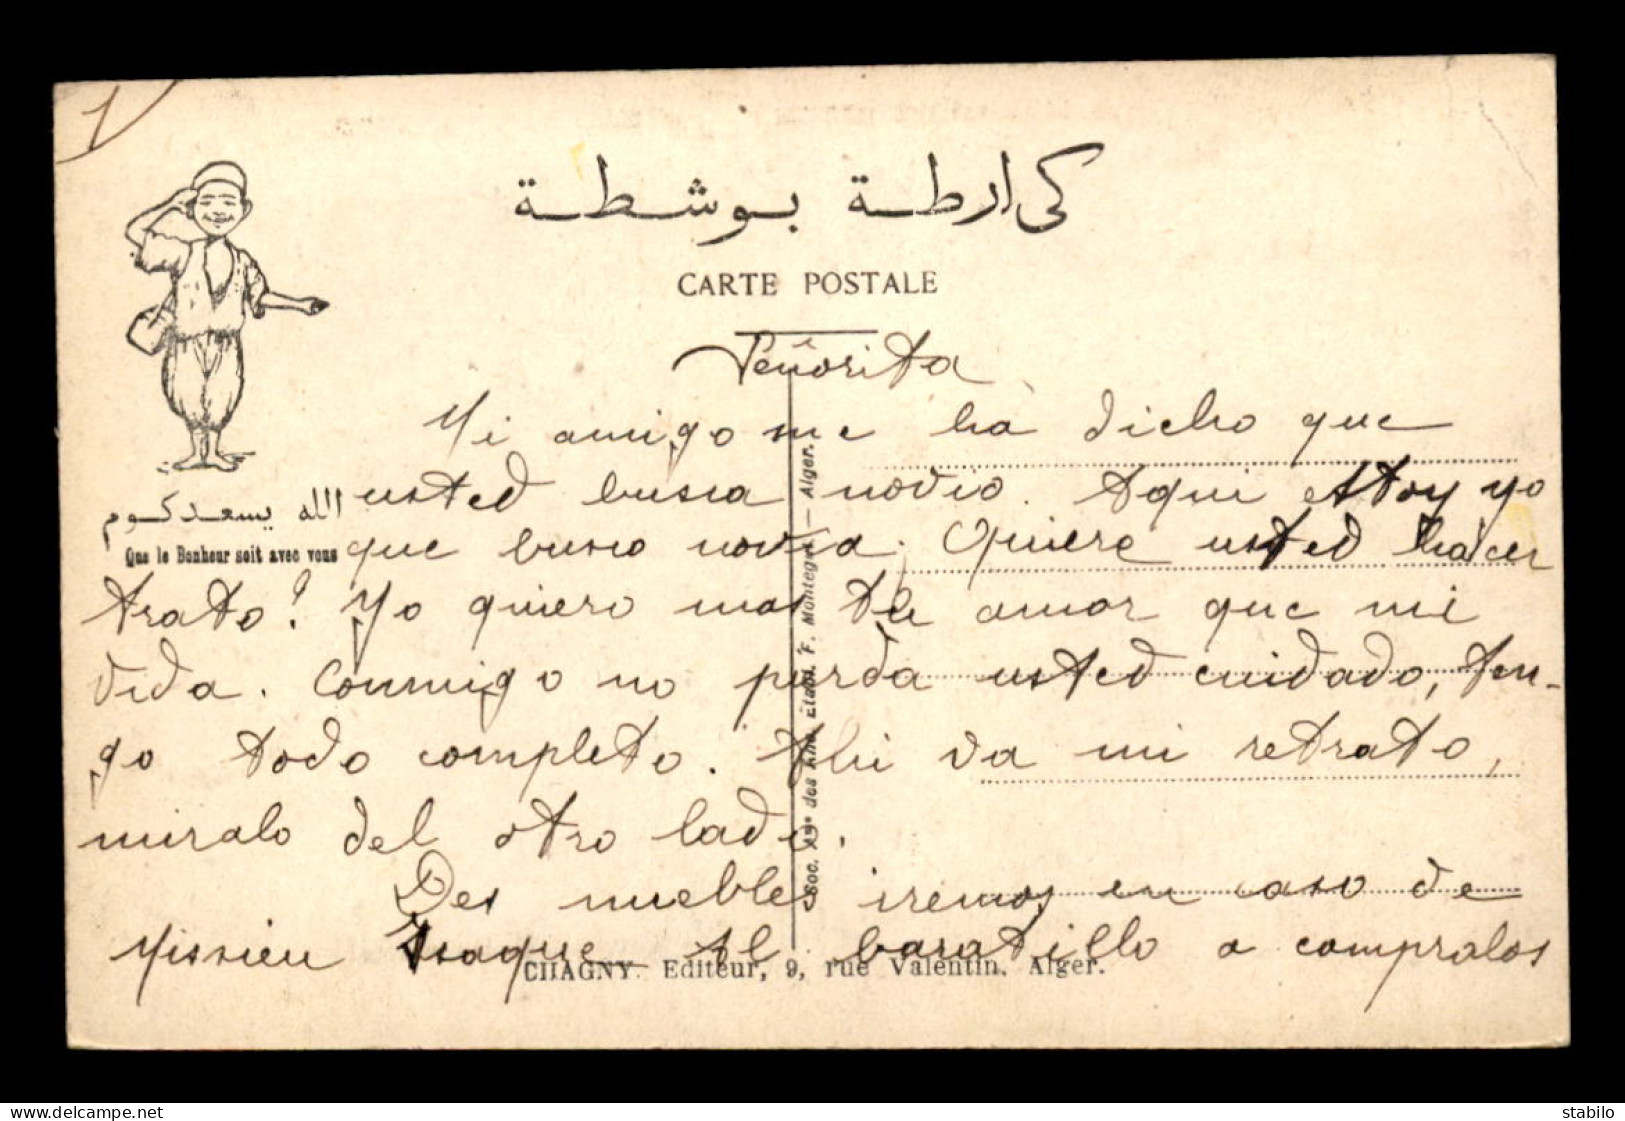 1
كارطة بوشطة
CARTE POSTALE
Señorita
Mi amigo me ha dicho que
usted busca novio. Aqui estoy yo
que busco novia. Quiere usted hacer
trato? Yo quiero mas tu amor que mi
vida. Conmigo no pierda usted cuidado, ten-
go todo completo. Ahi va mi retrato,
miralo del otro lado.
Des muebles iremos en caso de
Missieu Isaque al baratillo a compralos
الله يسعدكوم
Que le Bonheur soit avec vous
Soc. des Etabl. F. Montegut — Alger.
CHAGNY. Editeur, 9, rue Valentin. Alger.
delcampe.net
stabilo